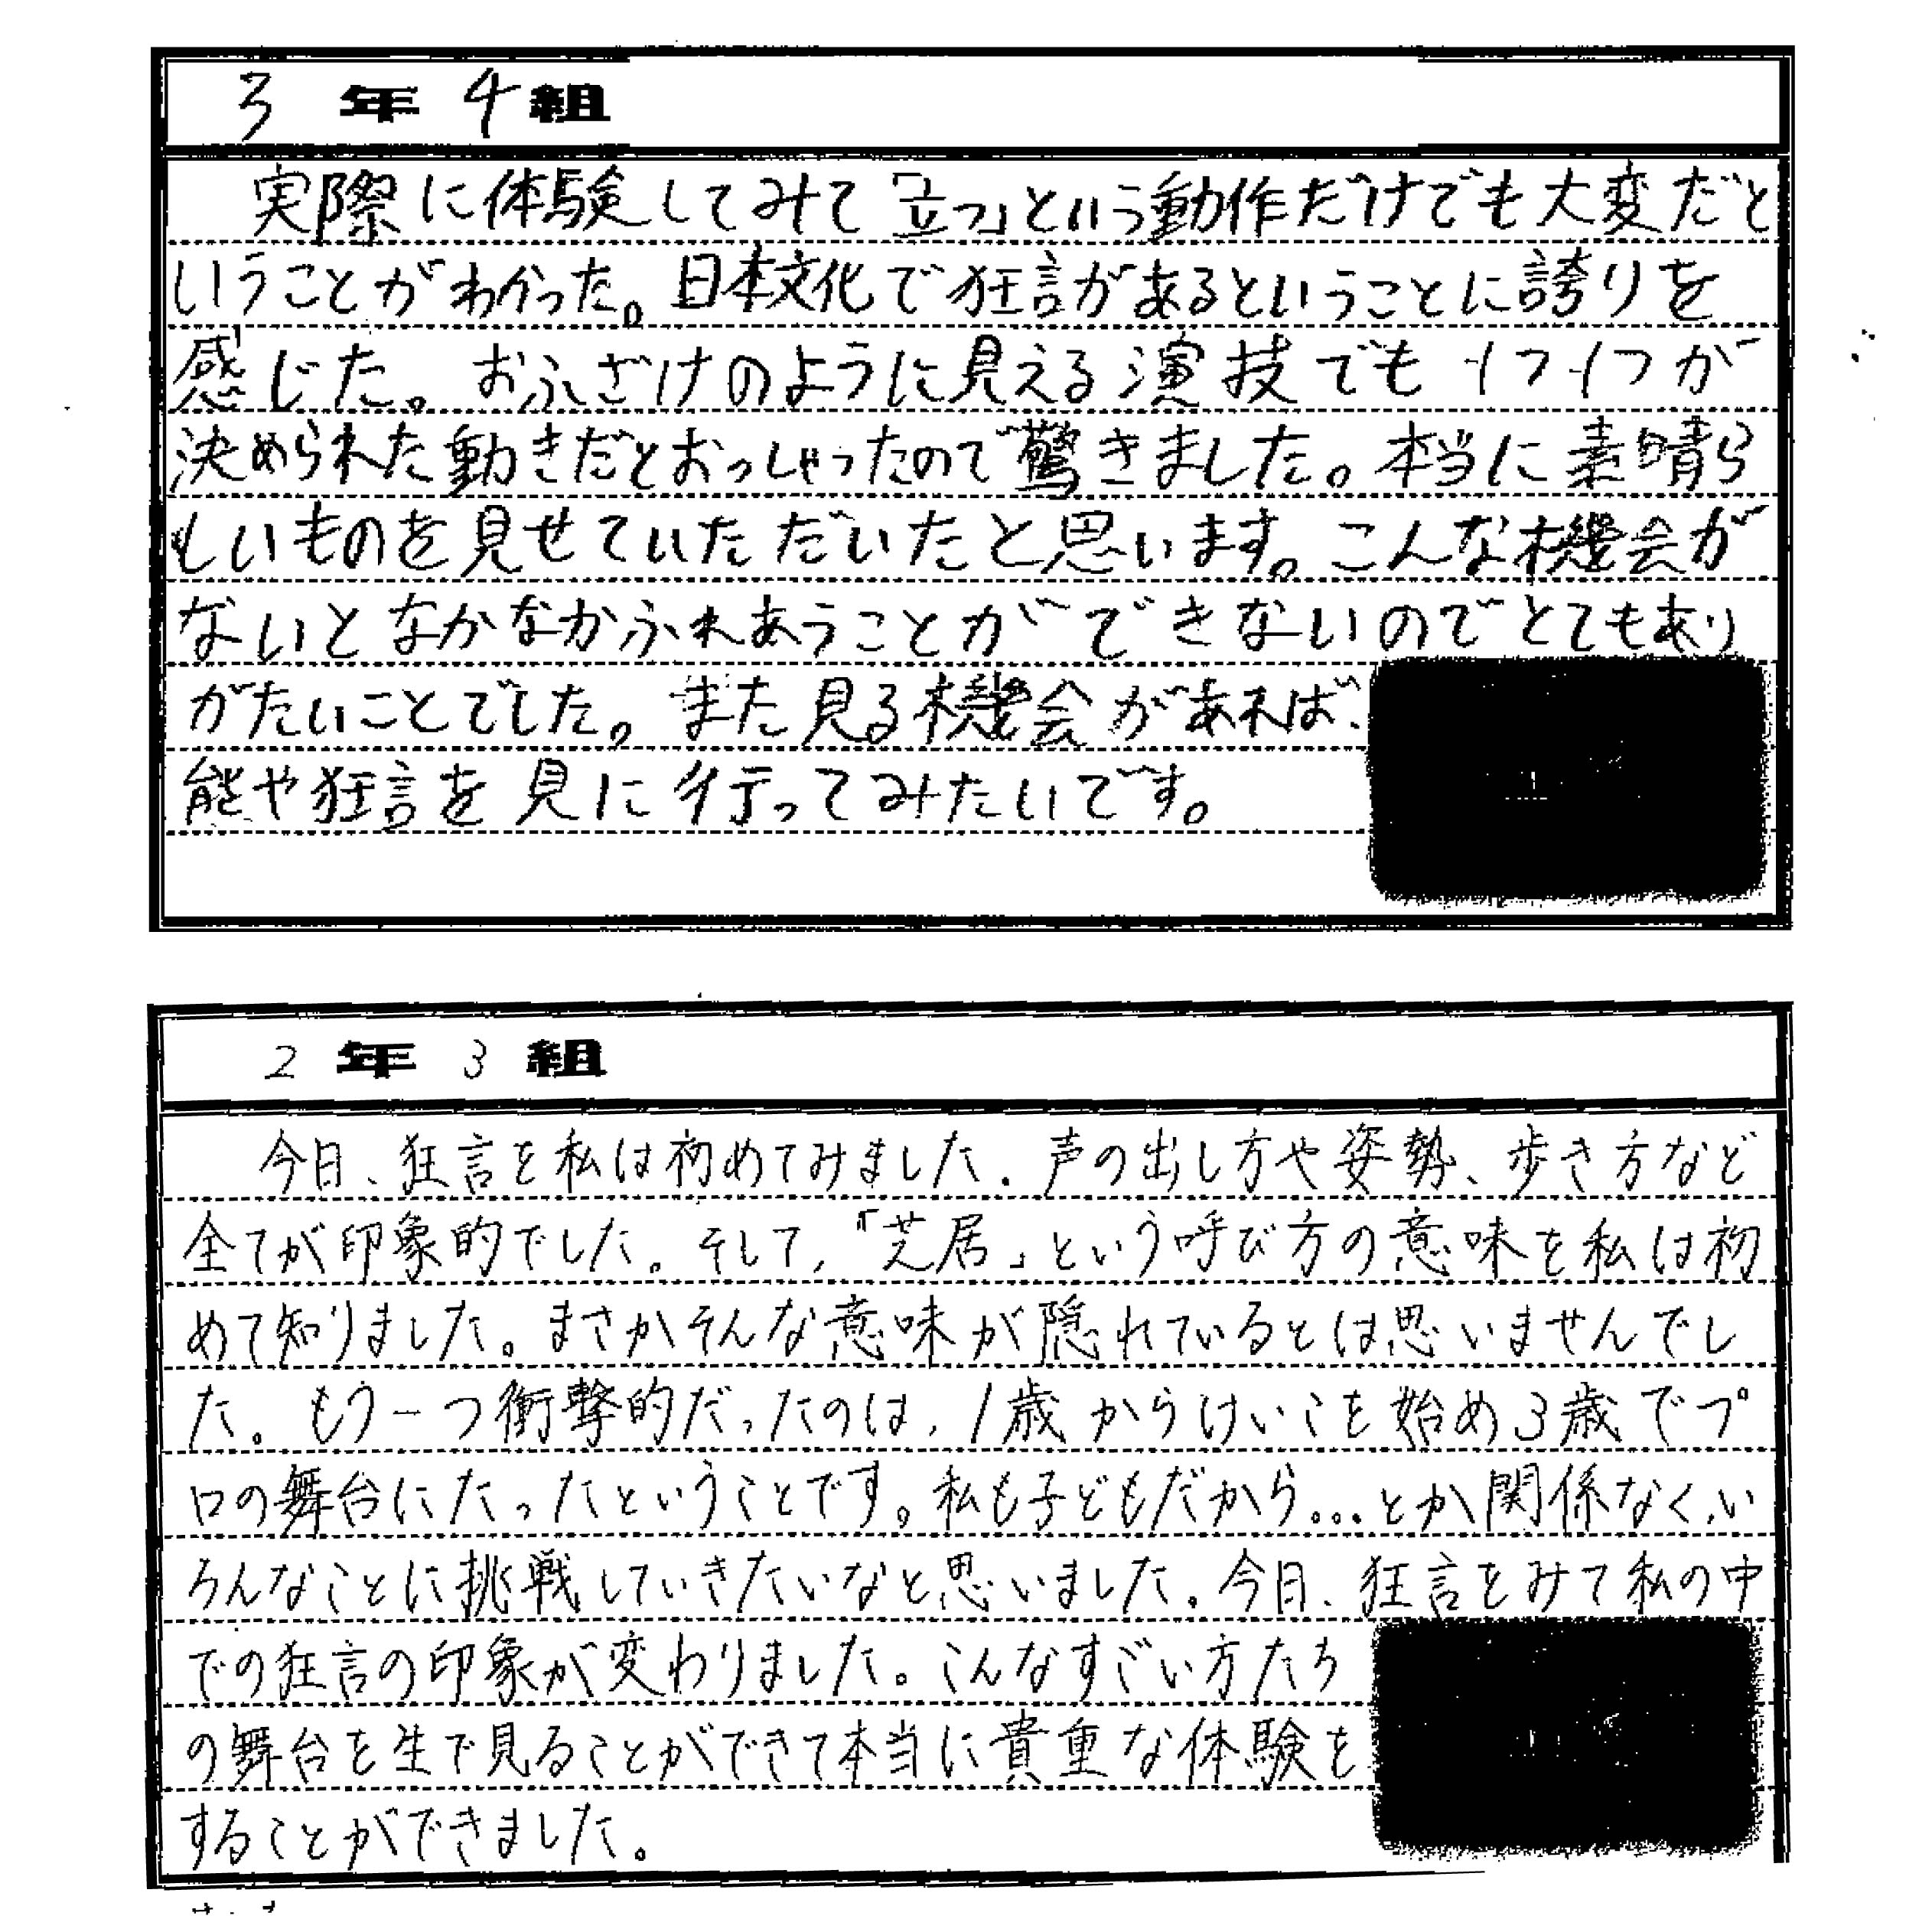 3年4組
実際に体験してみて「立つ」という動作だけでも大変だと
いうことがわかった。日本文化で狂言があるということに誇りを
感じた。おふざけのように見える演技でも1つ1つが
決められた動きだとおっしゃったので驚きました。本当に素晴ら
しいものを見せていただいたと思います。こんな機会が
ないとなかなかふれあうことができないのでとてもあり
がたいことでした。また見る機会があれば、
能や狂言を見に行ってみたいです。
2年3組
今日、狂言を私は初めてみました。声の出し方や姿勢、歩き方など
全てが印象的でした。そして、「芝居」という呼び方の意味を私は初
めて知りました。まさかそんな意味が隠れているとは思いませんでし
た。もう一つ衝撃的だったのは、1歳からけいこを始め3歳でプ
ロの舞台にたったということです。私も子どもだから...とか関係なく、い
ろんなことに挑戦していきたいなと思いました。今日、狂言をみて私の中
での狂言の印象が変わりました。こんなすごい方たち
の舞台を生で見ることができて本当に貴重な体験を
することができました。